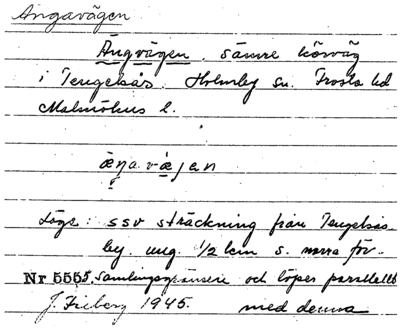 Ängavägen
Ängvägen, sämre körväg
i Tengelsås. Holmby sn. Frosta hd
Malmöhus l.
æŋavæjan
Läge: ssv sträckning från Tengelsås
by. ung. 1/2 km s. norra för-
Nr 5555. samlingsgränsen och löper parallellt
J. Frieberg 1945. med denna